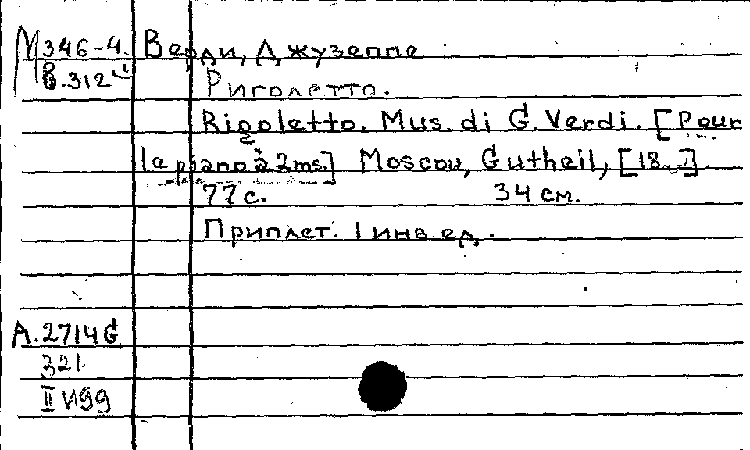 М 346-4. Верди, Джузеппе
В.312
Риголетто.
Rigoletto. Mus. di G. Verdi. [Pour
le piano à 2ms.] Moscou, Gutheil, [18..?]
77 с. 34 см.
Приплет. 1 инв ед.
А.2714G
321